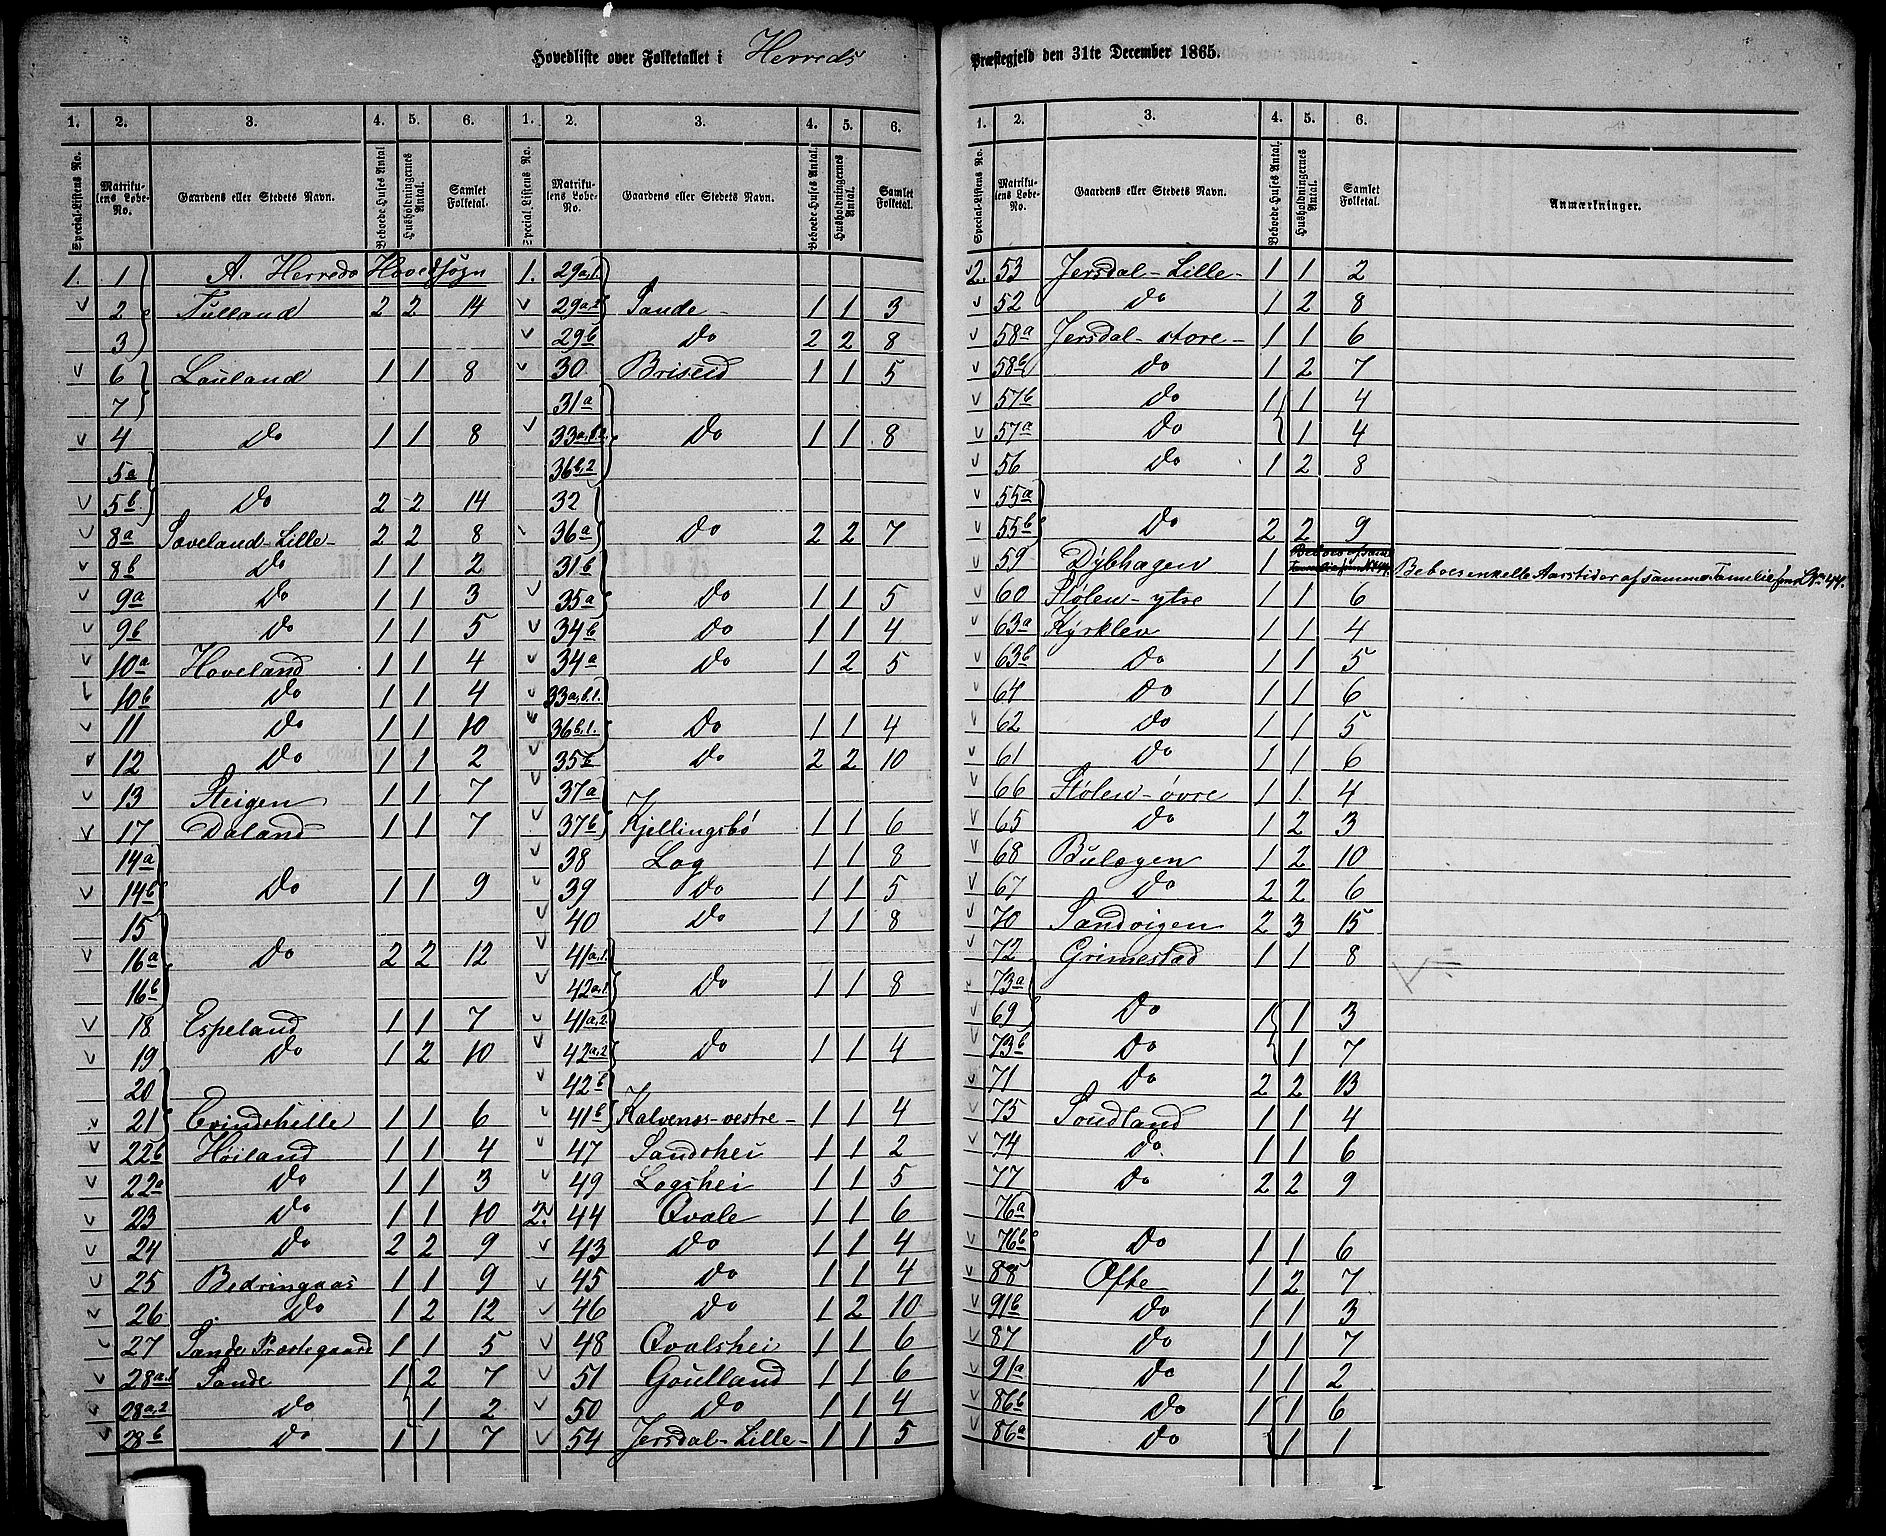 Hovedliste over Folketallet i Herreds Præstegjeld den 31te December 1865.
1. 2. 3. 4. 5. 6. 1. 2. 3. 4. 5. 6.
Special-Listens No. Matrikulens Løbe-No. Gaardens eller Stedets Navn. Beboede Huses Antal. Husholdningernes Antal. Samlet Folketal. Special-Listens No. Matrikulens Løbe-No. Gaardens eller Stedets Navn. Beboede Huses Antal. Husholdningernes Antal. Samlet Folketal.
1. 1 A. Herreds Hovedsogn
v 2 Fulland 2 2 14
3
v 6 Lauland 1 1 8
7
v 4 Do 1 1 8
5a
v 5b Do 2 2 14
v 8a Soveland-Lille- 2 2 8
v 8b Do 1 1 2
v 9a Do 1 1 3
v 9b Do 1 1 5
v 10a Hoveland 1 1 4
v 10b Do 1 1 4
v 11 Do 1 1 10
v 12 Do 1 1 2
v 13 Steigen 1 1 7
v 17 Daland 1 1 7
14a
v 14b Do 1 1 9
15
v 16a Do 2 2 12
16b
v 18 Espeland 1 1 7
v 19 Do 1 2 10
20
v 21 Evindshelle 1 1 6
v 22b Høiland 1 1 4
v 22a Do 1 1 3
v 23 Do 1 1 10
v 24 Do 2 2 9
v 25 Bedringaas 1 1 9
v 26 Do 1 2 12
v 27 Sande Præstegaard 1 1 5
v 28a.1 Sande 1 2 7
v 28a.2 Do 1 2
v 28b Do 1 1 7
1. 29a.1
v 29a.2 Sande- 1 1 3
v 29b Do 2 2 8
v 30 Briseid 1 1 5
31a
v 33a.b.2. Do 1 1 8
36b.2
32
36a Do 2 2 7
v 31b
v 35a Do 1 1 5
v 34b Do 1 1 4
v 34a Do 1 2 5
v 33a.b.1.
v 36b.1. Do 1 1 4
v 35b Do 2 2 10
v 37a
37b Kjellingsbø 1 1 6
v 38 Log 1 1 8
v 39 Do 1 1 5
v 40 Do 1 1 8
v 41a.1.
v 42a.1 Do 1 1 8
v 41a.2.
v 42a.2 Do 1 1 4
v 42b
v 41b Kalvenes-vestre- 1 1 4
v 47 Sandshei 1 1 2
v 49 Logshei 1 1 5
2. 44 Qvale 1 1 6
v 43 Do 1 1 4
v 45 Do 1 1 4
v 46 Do 1 2 10
v 48 Qvalshei 1 1 6
v 51 Goulland 1 1 6
v 50 Do 1 1 4
v 54 Jersdal-Lille- 1 1 5
1. 2. 3. 4. 5. 6.
Special-Listens No. Matrikulens Løbe-No. Gaardens eller Stedets Navn. Beboede Huses Antal. Husholdningernes Antal. Samlet Folketal. Anmærkninger.
2. 53 Jersdal-Lille- 1 1 2
v 52 Do 1 2 8
v 58a Jersdal-store- 1 1 6
v 58b Do 1 2 7
v 57b Do 1 1 4
v 57a Do 1 4
v 56 Do 1 2 8
v 55a
v 55b Do 2 2 9
v 59 Dybhagen 1 Beboes enkelte Aarstider af samme Familie fra L.No 44.
v 60 Stølen-ytre 1 1 6
v 63a Kyrklev 1 1 4
v 63b Do 1 1 5
v 64 Do 1 1 6
v 62 Do 1 1 5
v 61 Do 1 1 6
v 66 Stølen-øvre 1 1 4
v 65 Do 1 2 3
v 68 Bulagen 1 2 10
v 67 Do 2 2 6
v 70 Sandvigen 2 3 15
v 72 Grimestad 1 1 8
73a
v 69 Do 1 1 3
v 73b Do 1 7
v 71 Do 2 2 13
v 75 Soudland 1 1 4
v 74 Do 1 1 6
v 77 Do 2 2 9
76a
v 76b Do 1 1 6
v 88 Ofte 1 2 7
v 91b Do 1 1 3
v 87 Do 1 1 7
v 91a Do 1 1 2
v 86b Do 1 1 6
v 86a Do 1 1